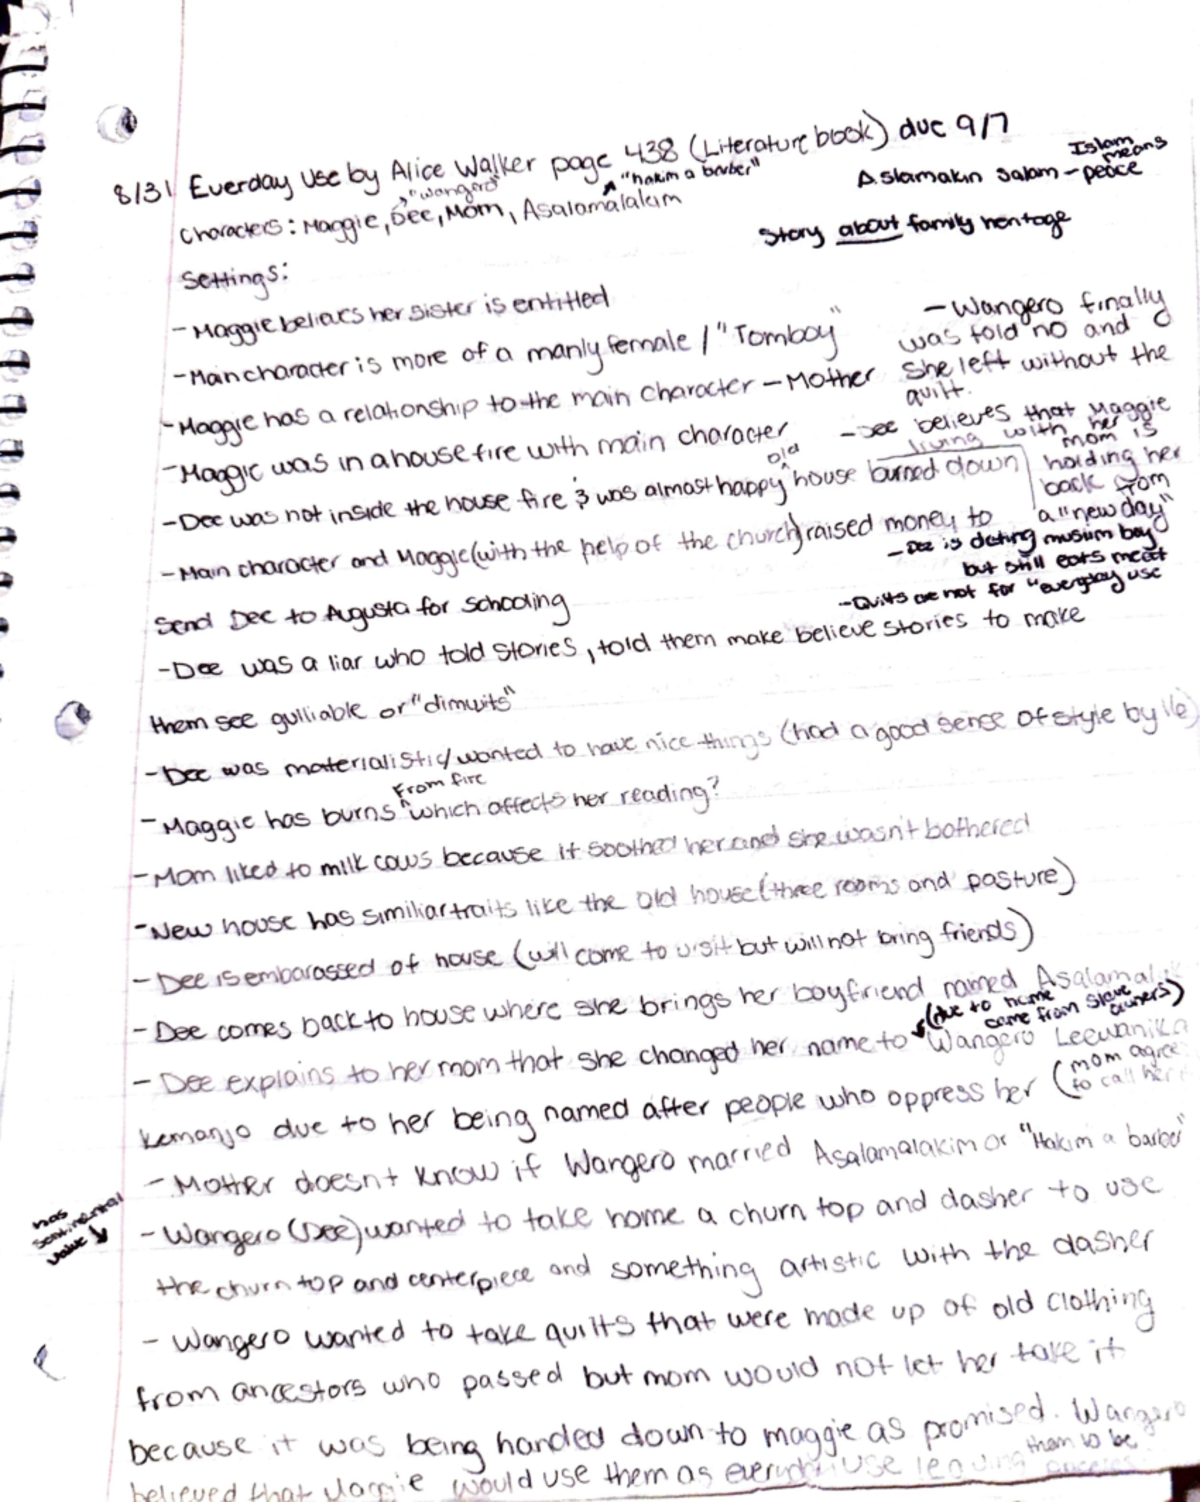 8/31 Everday Use by Alice Walker page 438 (Literature book) due 9/7
"wangero" "hakim a barber"
Characters: Maggie, Dee, Mom, Asalamalakim
Islam means
Aslamakin salam - peace
Story about family heritage
Settings:
- Maggie believes her sister is entitled
- Main character is more of a manly female / "Tomboy"
- Maggie has a relationship to the main character - Mother
- Maggie was in a house fire with main character
old
- Dee was not inside the house fire & was almost happy house burned down
- Main character and Maggie (with the help of the church) raised money to
send Dee to Augusta for schooling
- Wangero finally
was told no and
she left without the
quilt.
- Dee believes that Maggie
living with her
mom is
holding her
back from
a "new day"
- Dee is dating muslim boy
but still eats meat
- Quilts are not for "everyday use
- Dee was a liar who told stories, told them make believe stories to make
them see gulliable or "dimwits"
- Dee was materialistic/wanted to have nice things (had a good sense of style by 16)
From fire
- Maggie has burns which affects her reading?
- Mom liked to milk cows because it soothed her and she wasn't bothered
- New house has similiar traits like the old house (three rooms and pasture)
- Dee is embarassed of house (will come to visit but will not bring friends)
- Dee comes back to house where she brings her boyfriend named Asalamal
(due to name
came from slave
owners)
- Dee explains to her mom that she changed her name to Wangero Leewanika
(mom agree
to call her
kemanjo due to her being named after people who oppress her
- Mother doesnt know if Wangero married Asalamalakim or "Hakim a barber"
has
sentimental
value
- Wangero (Dee) wanted to take home a churn top and dasher to use
the churn top and centerpiece and something artistic with the dasher
- Wangero wanted to take quilts that were made up of old clothing
from ancestors who passed but mom would not let her take it
because it was being handed down to maggie as promised. Wangero
them to be
believed that Maggie would use them as everyday use leaving